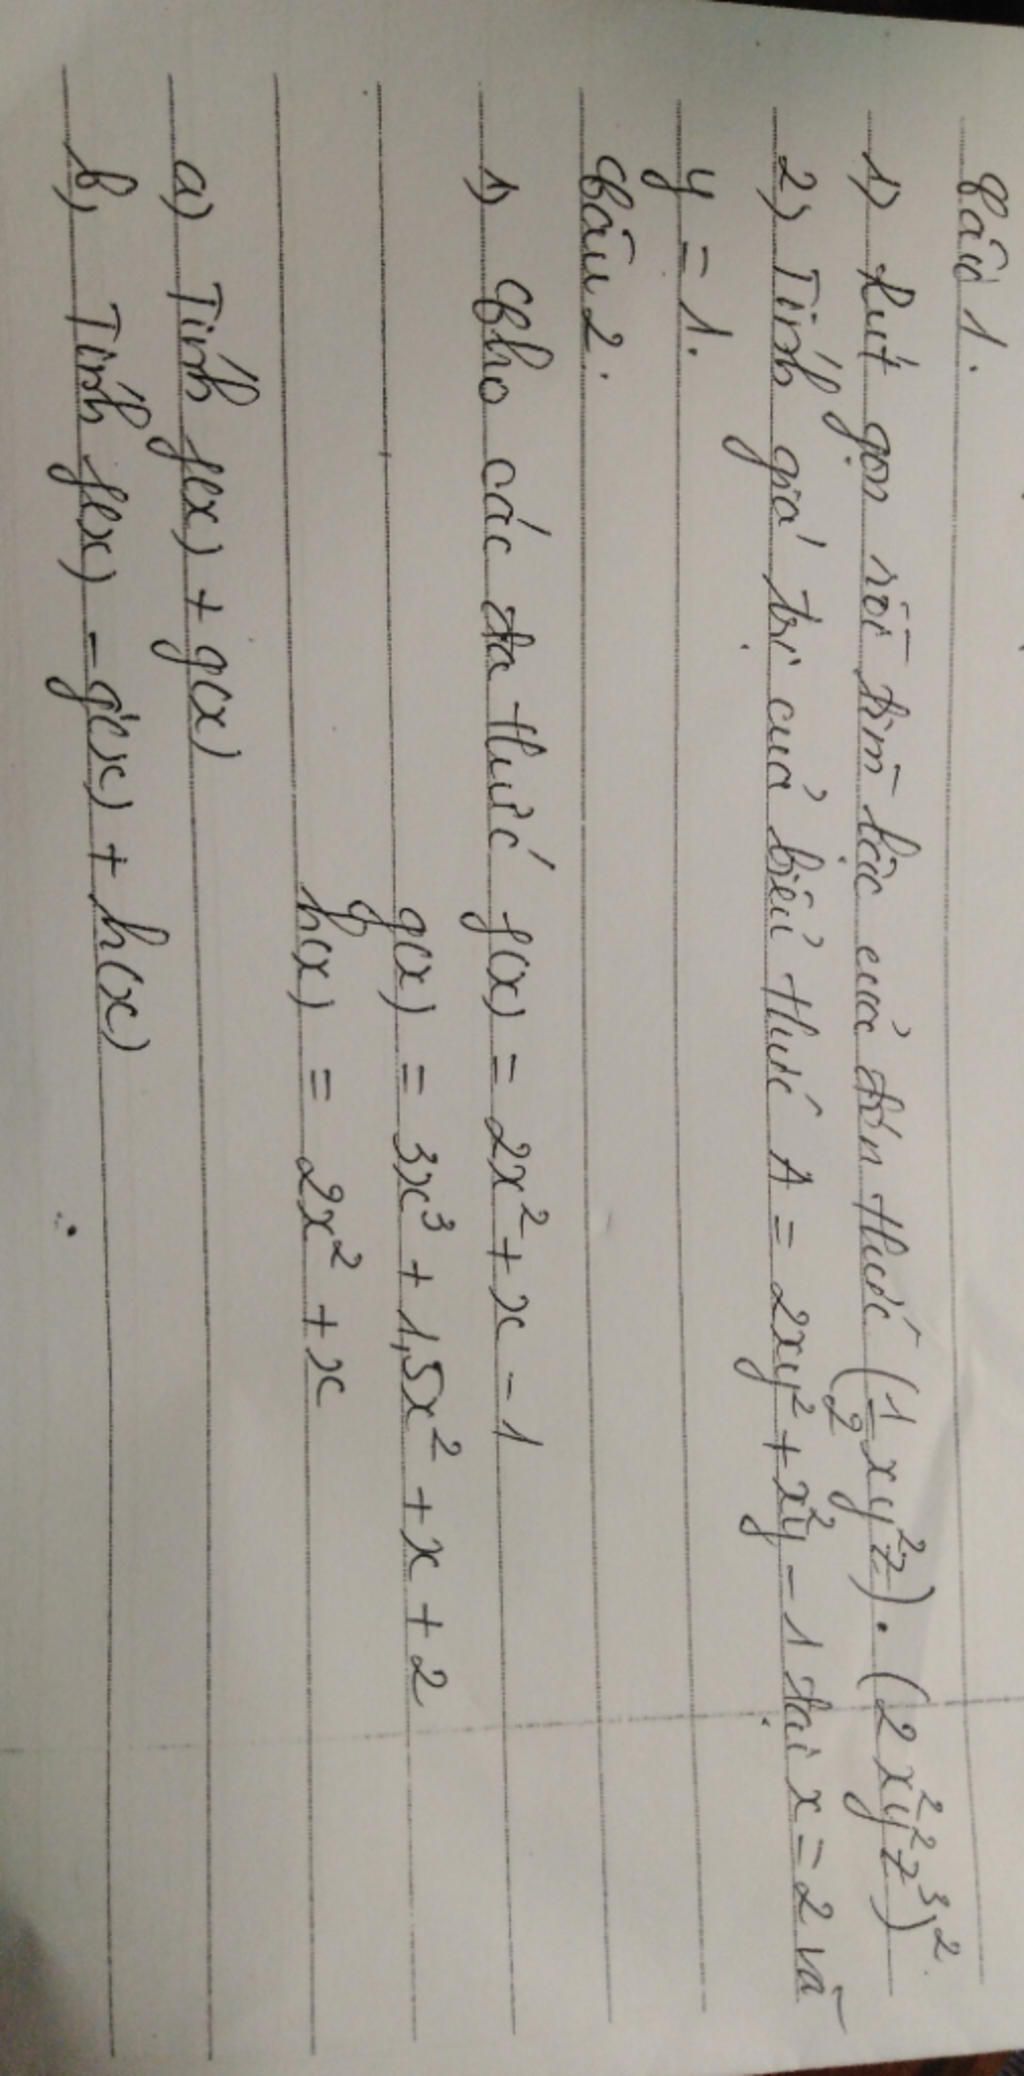 Câu 1.
1) Rút gọn rồi tìm bậc của đơn thức (1/2 xy²z) . (2x²y²z³)².
2) Tính giá trị của biểu thức A = 2xy² + x²y - 1 tại x = 2 và
y = 1.
Câu 2.
1) Cho các đa thức f(x) = 2x² + x - 1
g(x) = 3x³ + 1,5x² + x + 2
h(x) = 2x² + x
a) Tính f(x) + g(x)
b) Tính f(x) - g(x) + h(x)